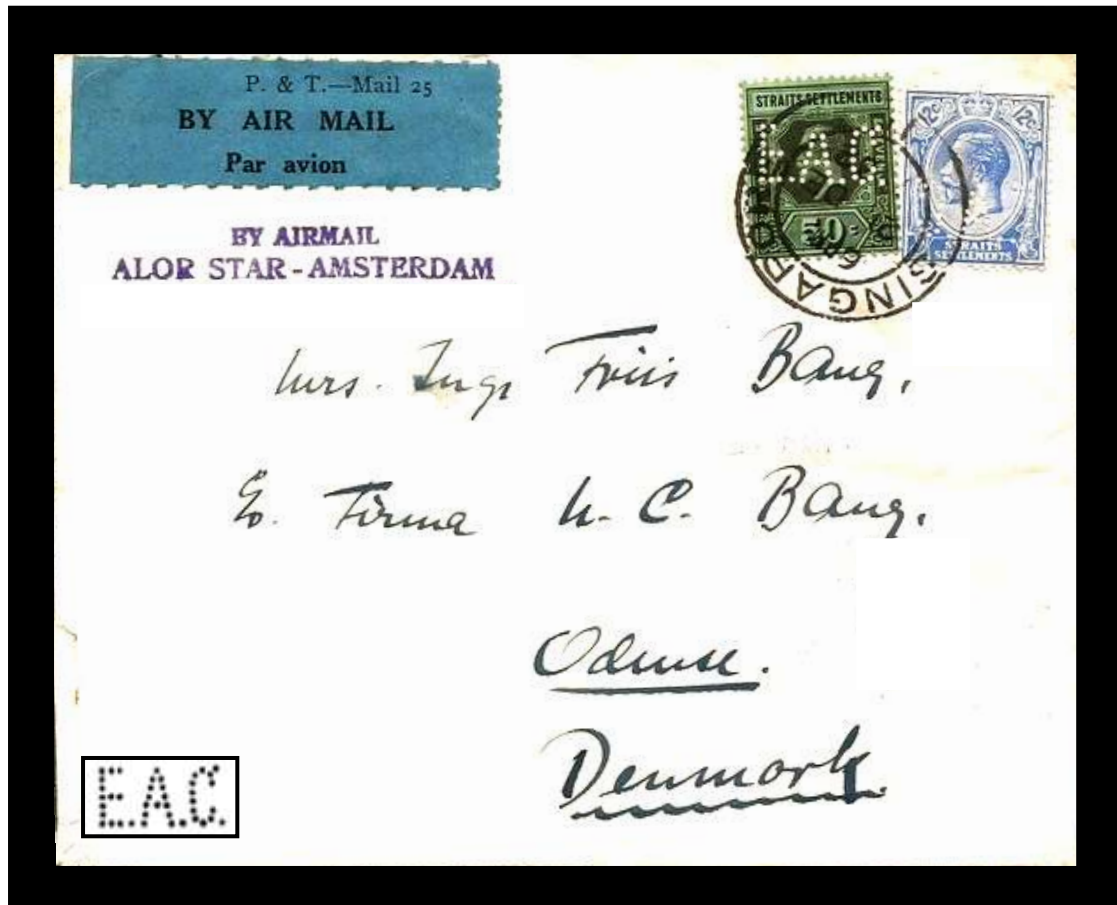 P. & T.—Mail 25
BY AIR MAIL
Par avion
BY AIRMAIL
ALOR STAR - AMSTERDAM
STRAITS SETTLEMENTS
E.A.C.
50 c
12c 12c
STRAITS
SETTLEMENTS
SINGAPORE
Mrs. Inge Friis Bang.
Firma N. C. Bang.
Odense.
Denmark.
E.A.C.